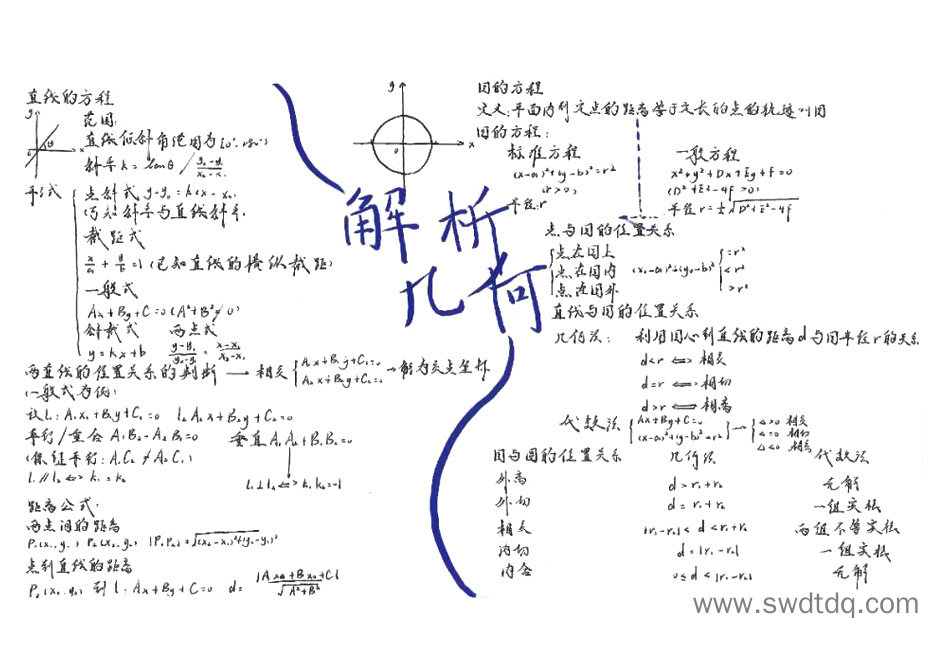 直线的方程
y
x
范围:
直线倾斜角范围为[0°,180°)
斜率k=tanθ/(y₂-y₁)/(x₂-x₁)
点斜式 y-y₀=k(x-x₀)
截距式
x/a+y/b=1(已知直线的横纵截距)
一般式
Ax+By+C=0(A²+B²≠0)
斜截式 两点式
y=kx+b (y-y₁)/(y₂-y₁)=(x-x₁)/(x₂-x₁)
两直线的位置关系的判断→相交{A₁x+B₁y+C₁=0 A₂x+B₂y+C₂=0→解为交点坐标
(一般式为例)
设l₁:A₁x+B₁y+C₁=0 l₂A₂x+B₂y+C₂=0
平行/重合A₁B₂-A₂B₁=0 垂直A₁A₂+B₁B₂=0
l₁∥l₂⇔k₁=k₂ l₁⊥l₂⇔k₁k₂=-1
距离公式:
两点间的距离
P₁(x₁,y₁) P₂(x₂,y₂) |P₁P₂|=√(x₂-x₁)²+(y₂-y₁)²
点到直线的距离
P₀(x₀,y₀)到l:Ax+By+C=0 d=|Ax₀+By₀+C|/√A²+B²
解析
几何
y
x
0
圆的方程
定义:平面内到定点的距离等于定长的点的轨迹叫圆
圆的方程:
标准方程 一般方程
(x-a)²+(y-b)²=r² x²+y²+Dx+Ey+F=0
(r>0) (D²+E²-4F>0)
半径:r 半径r=½√D²+E²-4F
点与圆的位置关系
点在圆上 =r²
点在圆内 (x₀-a)²+(y₀-b)² <r²
点在圆外 >r²
直线与圆的位置关系
几何法: 利用圆心到直线的距离d与圆半径r的关系
d<r⇔相交
d=r⇔相切
d>r⇔相离
代数法{Ax+By+C=0 (x-a)²+(y-b)²=r²→{△>0 相交 △=0 相切 △<0 相离
圆与圆的位置关系 几何法 代数法
外离 d>r₁+r₂ 无解
外切 d=r₁+r₂ 一组实根
相交 |r₁-r₂|<d<r₁+r₂ 两组不等实根
内切 d=|r₁-r₂| 一组实根
内含 0≤d<|r₁-r₂| 无解
www.swdtdq.com